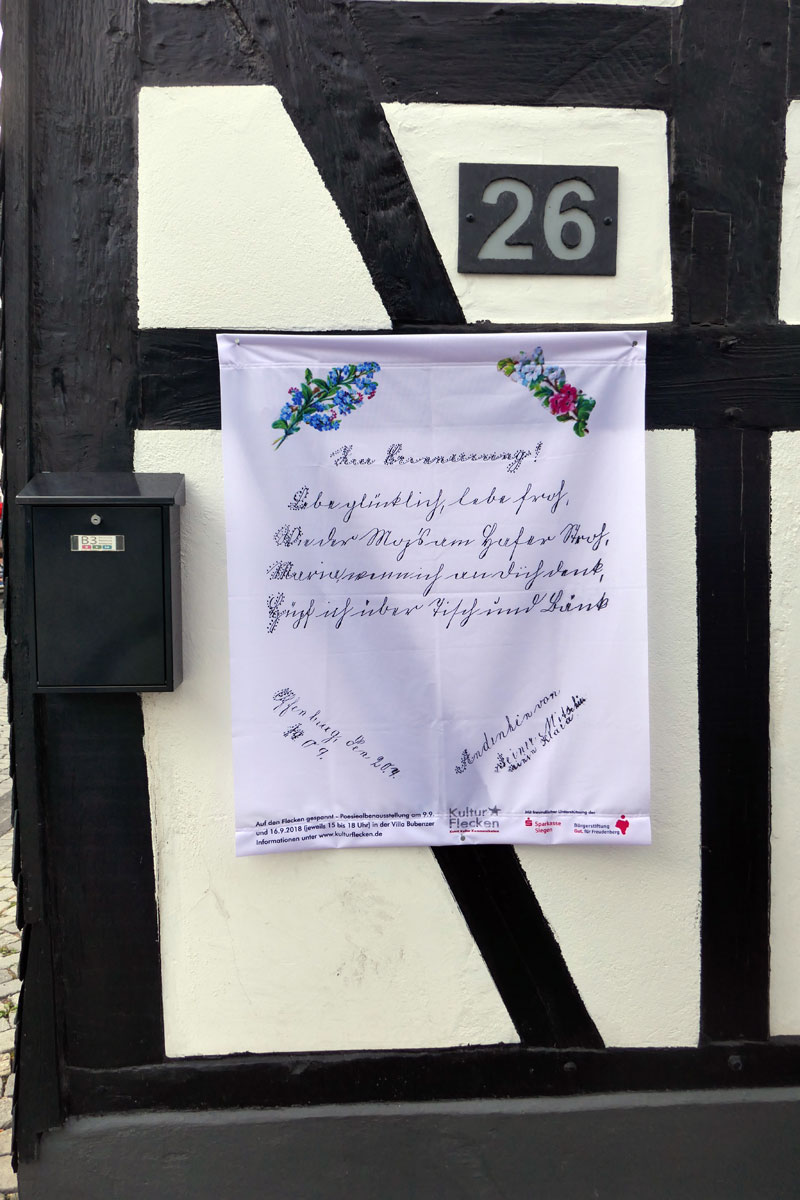 26
B3
Zur Erinnerung!
Lebe glücklich, lebe froh,
Wie der Mops am Hafer Stroh,
Maria wenn ich an dich denk,
Hüpf ich über Tisch und Bänk
den 20.4.
09.
Andenken von
Deiner Mitschü
Klara
Auf den Flecken gespannt - Poesiealbenausstellung am 9.9.
und 16.9.2018 (jeweils 15 bis 18 Uhr) in der Villa Bubenzer
Informationen unter www.kulturflecken.de
Kultur
Flecken
Kunst Kultur Kommunikation
Mit freundlicher Unterstützung der
Sparkasse
Siegen
Bürgerstiftung
Gut. für Freudenberg